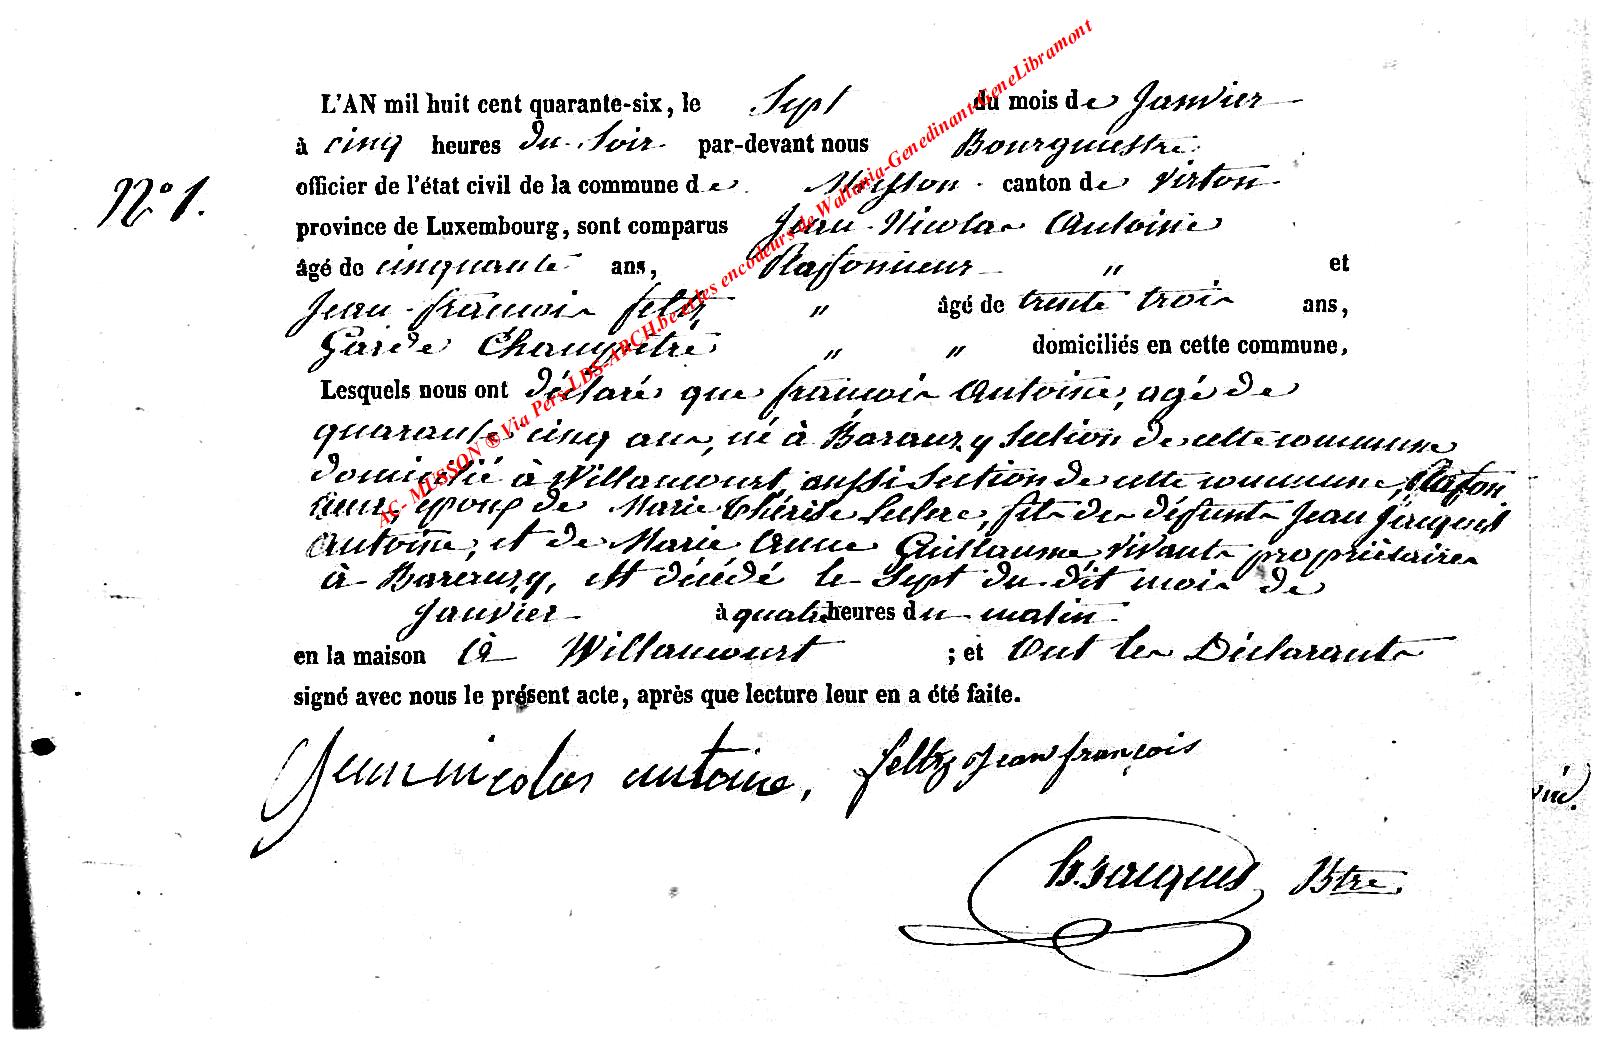 L'AN mil huit cent quarante-six, le Sept du mois de Janvier
à cinq heures du Soir par-devant nous Bourguestre
N° 1.
officier de l'état civil de la commune de Musson canton de Virton
province de Luxembourg, sont comparus Jean Nicolas Antoine
âgé de cinquante ans, Plafonneur " et
Jean françois feltz " âgé de trente trois ans,
Garde Champêtre " " domiciliés en cette commune,
Lesquels nous ont déclaré que françois Antoine, agé de
quarante cinq ans, né à Baranzy Section de cette commune
domicilié à Willancourt, aussi Section de cette commune, Plafon
neur, epoux de Marie Thérèse Leclerc, fils des défunts Jean Jacques
Antoine, et de Marie Anne Guillaume vivants propriétaires
à Baranzy, est décédé le Sept du dit mois de
Janvier à quatre heures du matin
en la maison à Willancourt ; et Ont les Déclarants
signé avec nous le présent acte, après que lecture leur en a été faite.
Jean nicolas antoine, feltz Jean françois
h. Jacques Btre
AC- MUSSON ® Via Pers LDS-ARCH.be et les encodeurs de Wallonia-Genedinant-GeneLibramont